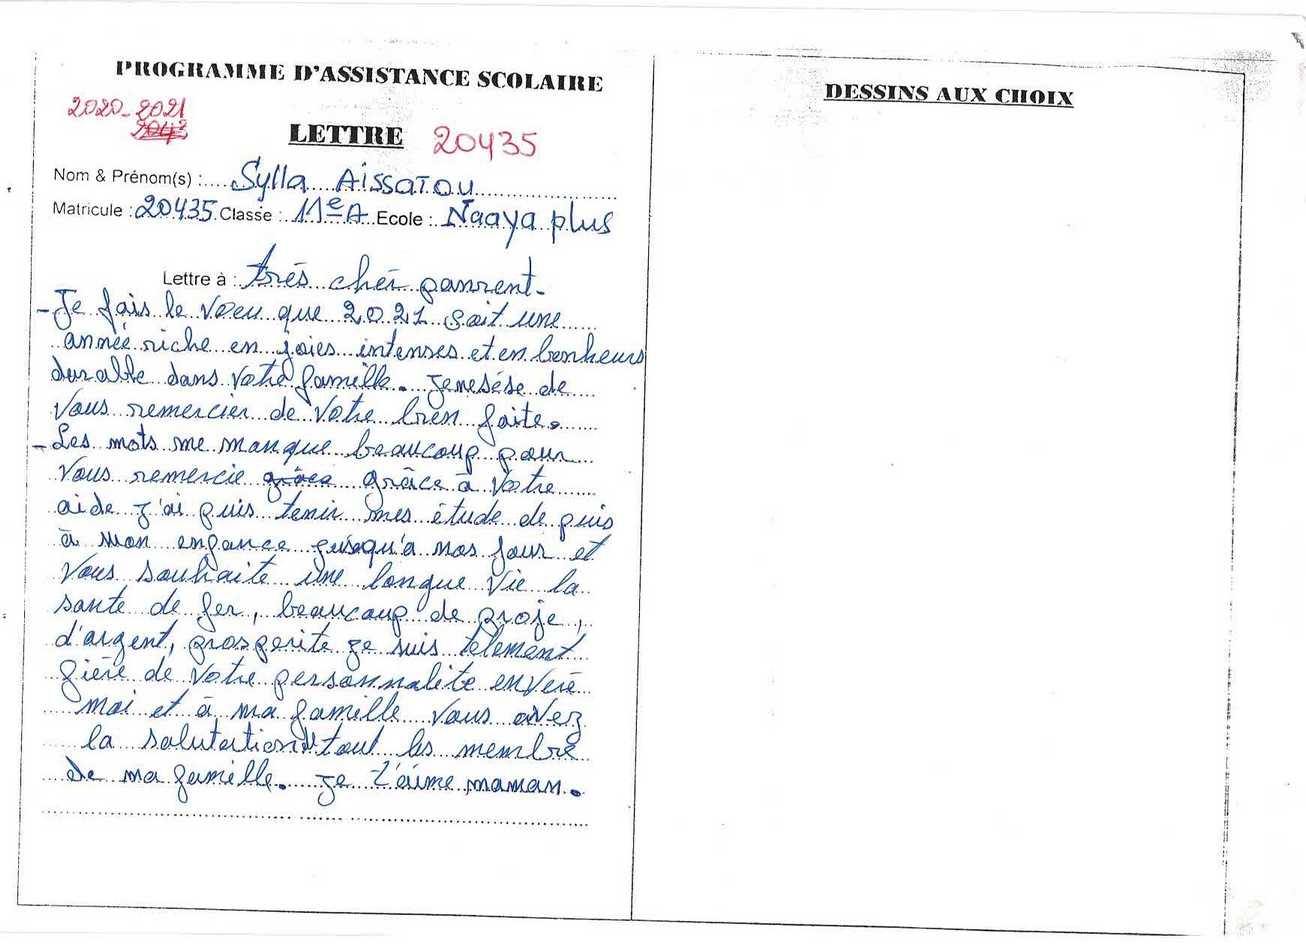 PROGRAMME D'ASSISTANCE SCOLAIRE
2020-2021
2043
LETTRE 20435
Nom & Prénom(s) : Sylla Aissatou
Matricule : 20435 Classe : 11e A Ecole : Naaya plus
Lettre à : très chér panrent.
- Je fais le voeu que 2021 sait une
année riche en joies intenses et en bonheurs
durable dans votre famille. Je nesése de
vous remercier de votre bien faite.
- Les mots me manque beaucoup pour
vous remercie grâce à votre
aide j'ai puis tenir mes étude de puis
à mon enfance jusqu'à nos jour et
vous souhaite une longue vie la
sante de fer, beaucoup de proje,
d'argent, prosperite je suis télement
fière de votre personnalite enveré
moi et à ma famille vous avez
la salutation de tout les membre
de ma famille. Je t'aime maman.
DESSINS AUX CHOIX